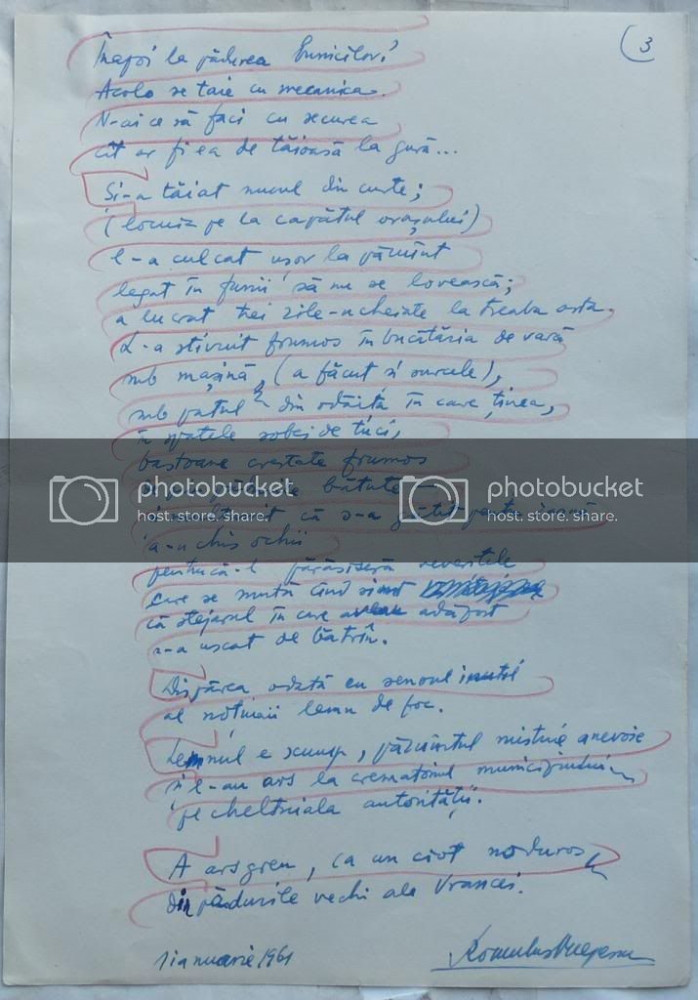 (3
Înapoi la pădurea bunicilor?
Acolo se taie cu mecanica.
N-ai ce să faci cu securea
cît ar fi ea de tăioasă la gură...
Și-a tăiat nucul din curte;
(locuia pe la capătul orașului)
l-a culcat ușor la pămînt
legat în funii să nu se lovească;
a lucrat trei zile-ncheiate la treaba asta.
L-a stivuit frumos în bucătăria de vară
sub mașină, (a făcut și surcele),
sub patul din odăița în care ținea,
în spatele sobei de tuci,
bastoane crestate frumos
bătute
că s-a pentru iarnă
a-nchis ochii
pentru că-l părăsiseră veverițele
care se mută cînd simt
că stejarul în care aveau adăpost
s-a uscat de bătrîn.
Dispărea odată cu
al lemn de foc.
Lemnul e scump, pămîntul mistuie anevoie
și l-au ars la crematoriul municipiului
pe cheltuiala autorității.
A ars greu, ca un ciot noduros
din pădurile vechi ale Vrancei.
1 ianuarie 1961
Romulus Vulpescu
photobucket
host. store. share.
photobucket
host. store. share.